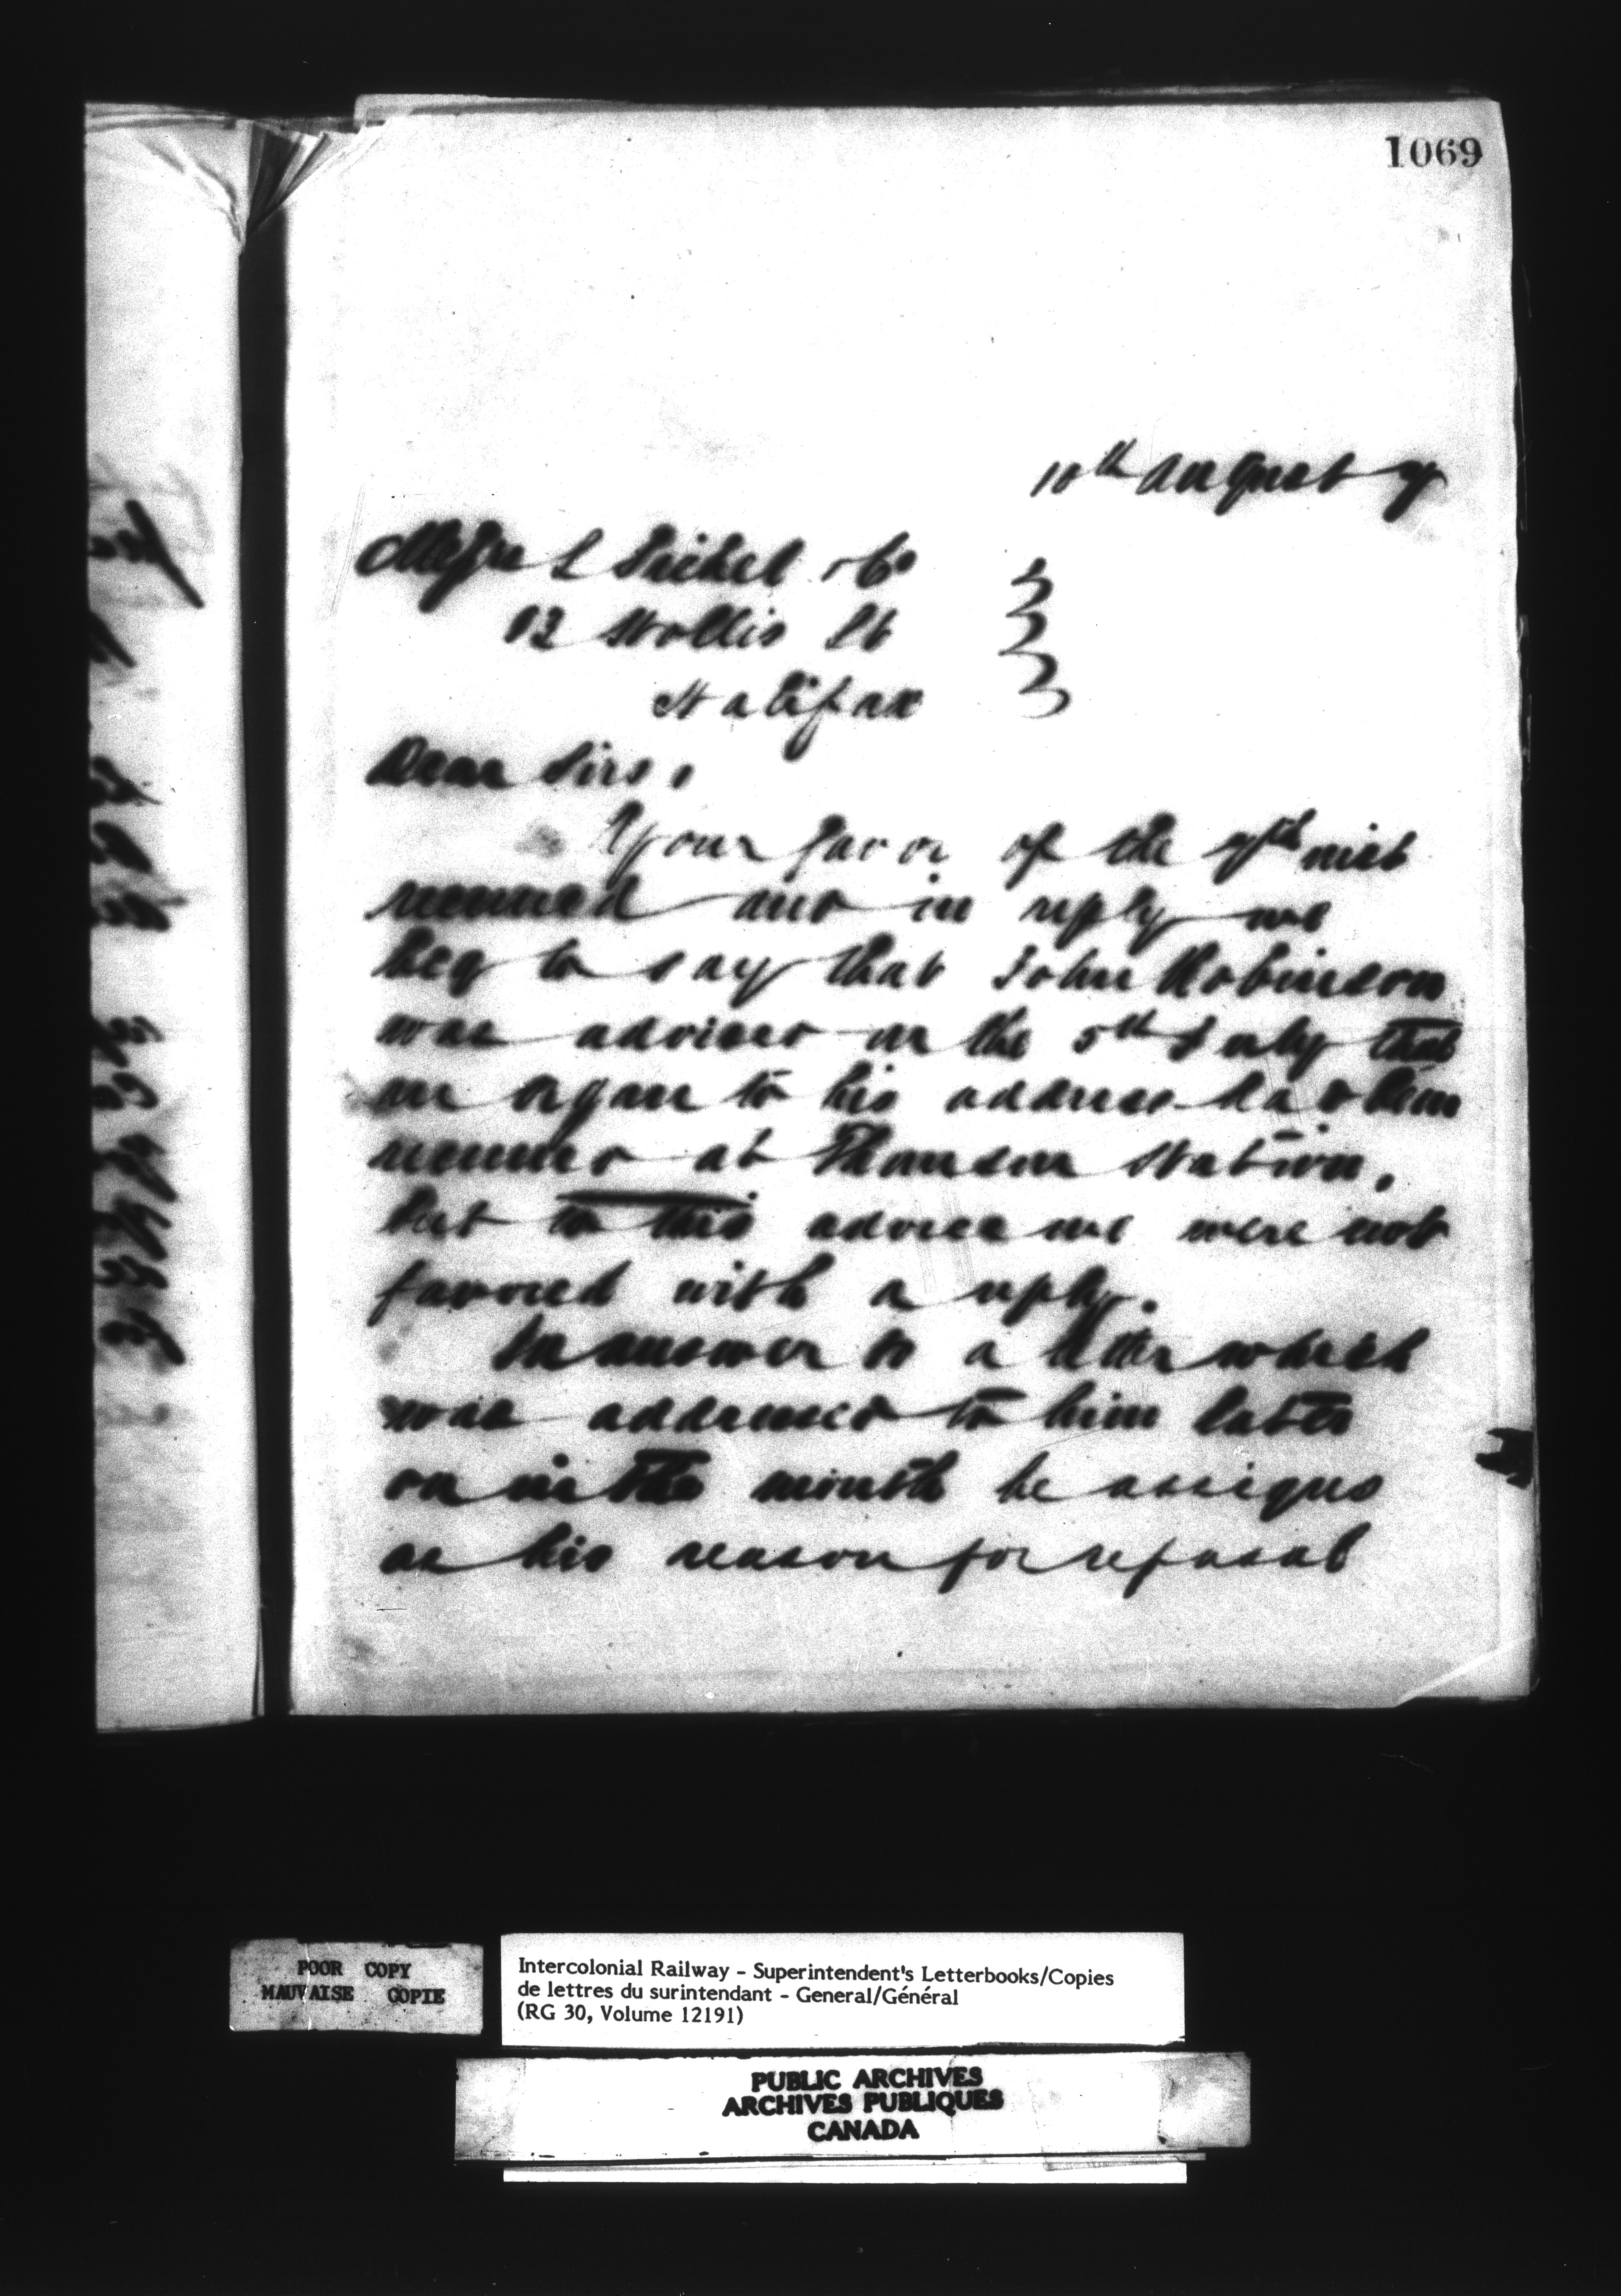 1069
10th August 
Messrs L Sichel & Co
82 Hollis St
Halifax
Dear Sirs,
Your favor of the 7th inst
received and in reply we
beg to say that John Robinson
was advised on the 5th July that
an organ to his address had been
received at Thomson Station,
but to this advice we were not
favored with a reply.
In answer to a letter which
was addressed to him later
on in the month he assigns
as his reason for refusal
POOR COPY
MAUVAISE COPIE
Intercolonial Railway - Superintendent's Letterbooks/Copies
de lettres du surintendant - General/Général
(RG 30, Volume 12191)
PUBLIC ARCHIVES
ARCHIVES PUBLIQUES
CANADA